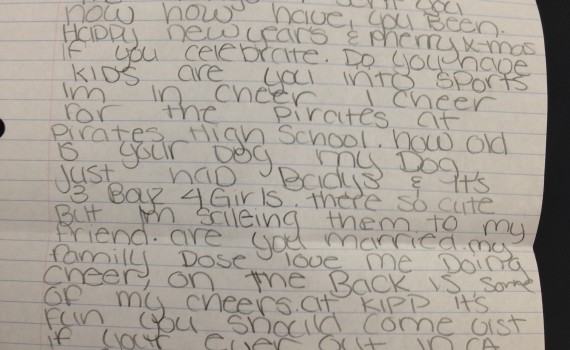 you
now how have you Been.
Happy new years & merry x-mas
if you celebrate. Do you have
kids are you into sports
im in cheer I cheer
for the pirates at
Pirates High School. how old
is your Dog my Dog
Just had Badys & it's
3 Boyz 4 Girls. there so cute
But im saileing them to my
friend. are you married. my
family Dose love me Doing
cheer, on the Back is some
of my cheers. at KIPP it's
fun you should come oist
if your ever out in CA